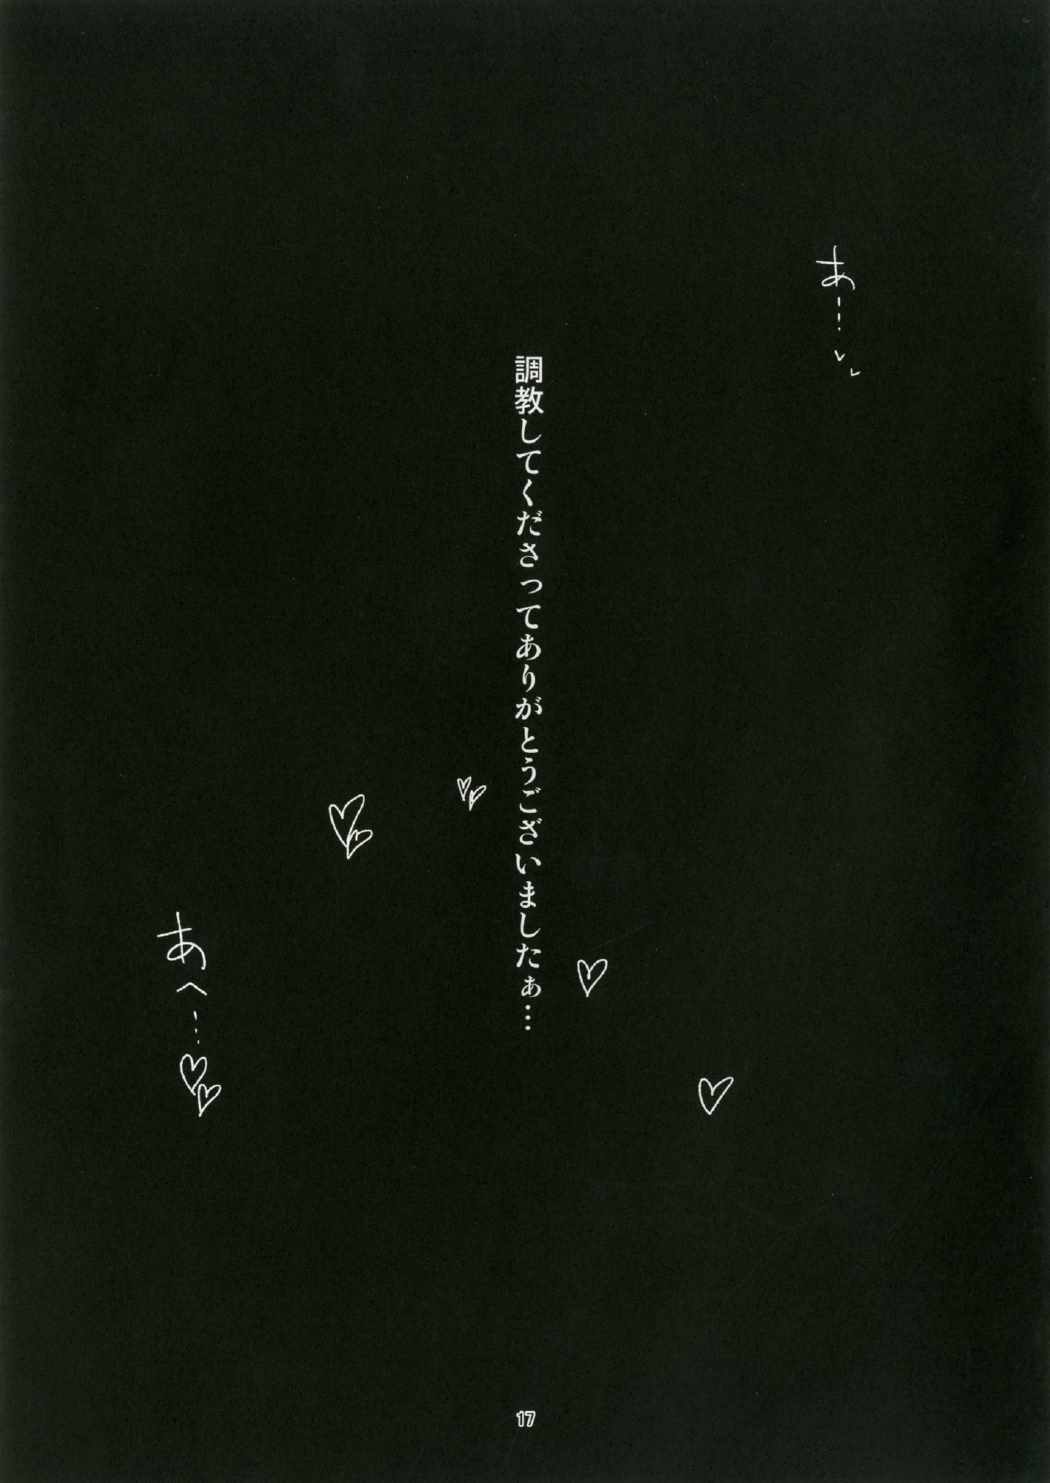 あ…♡♡
調教してくださってありがとうございましたぁ…
あへ…♡♡
17